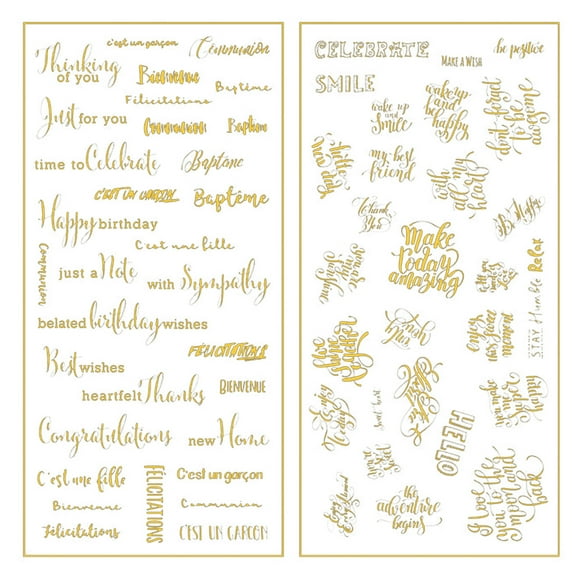 c'est un garçon
Communion
Thinking
of you
Bienvenue
Baptême
Félicitations
Just for you
Communion
Baptême
time to Celebrate
Baptême
C'EST UN GARÇON
Baptême
Happy birthday
C'est une fille
Communion
just a Note
with Sympathy
belated birthday wishes
FÉLICITATIONS
Best wishes
heartfelt Thanks
BIENVENUE
Congratulations
new Home
C'est une fille
FÉLICITATIONS
C'est un garçon
Bienvenue
Communion
Félicitations
C'EST UN GARÇON
CELEBRATE
MAKE A WISH
be positive
SMILE
wake up
and
smile
wake up
and be
happy
don't forget
to be
awesome
my best
friend
with
all my
heart
thank
you
Be Happy
make
today
amazing
you are
my
sunshine
Relax
STAY Humble
enjoy
this
moment
thank
you
we
are
together
Enjoy
Today
you make
me
super
happy
HELLO
the
adventure
begins
I love
you to the
moon and
back